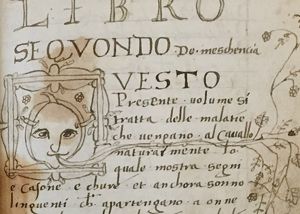 LIBRO
SEQVONDO Do meschencia
QVESTO
Presente volume si
tratta delle malatie
che vengano al Cauallo
naturalmente Lo
quale mostra segni
e Casone e chure et anchora sonno
linquenti ch apartengano a onne